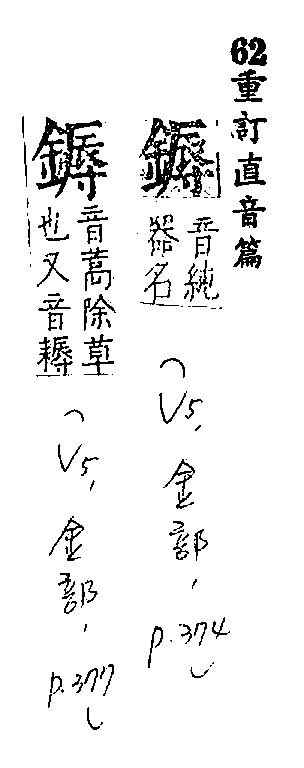 62重訂直音篇
音純
器名
(V5, 金部, p.374)
鎒
音蒿除草
也又音耨
(V5, 金部, p.377)